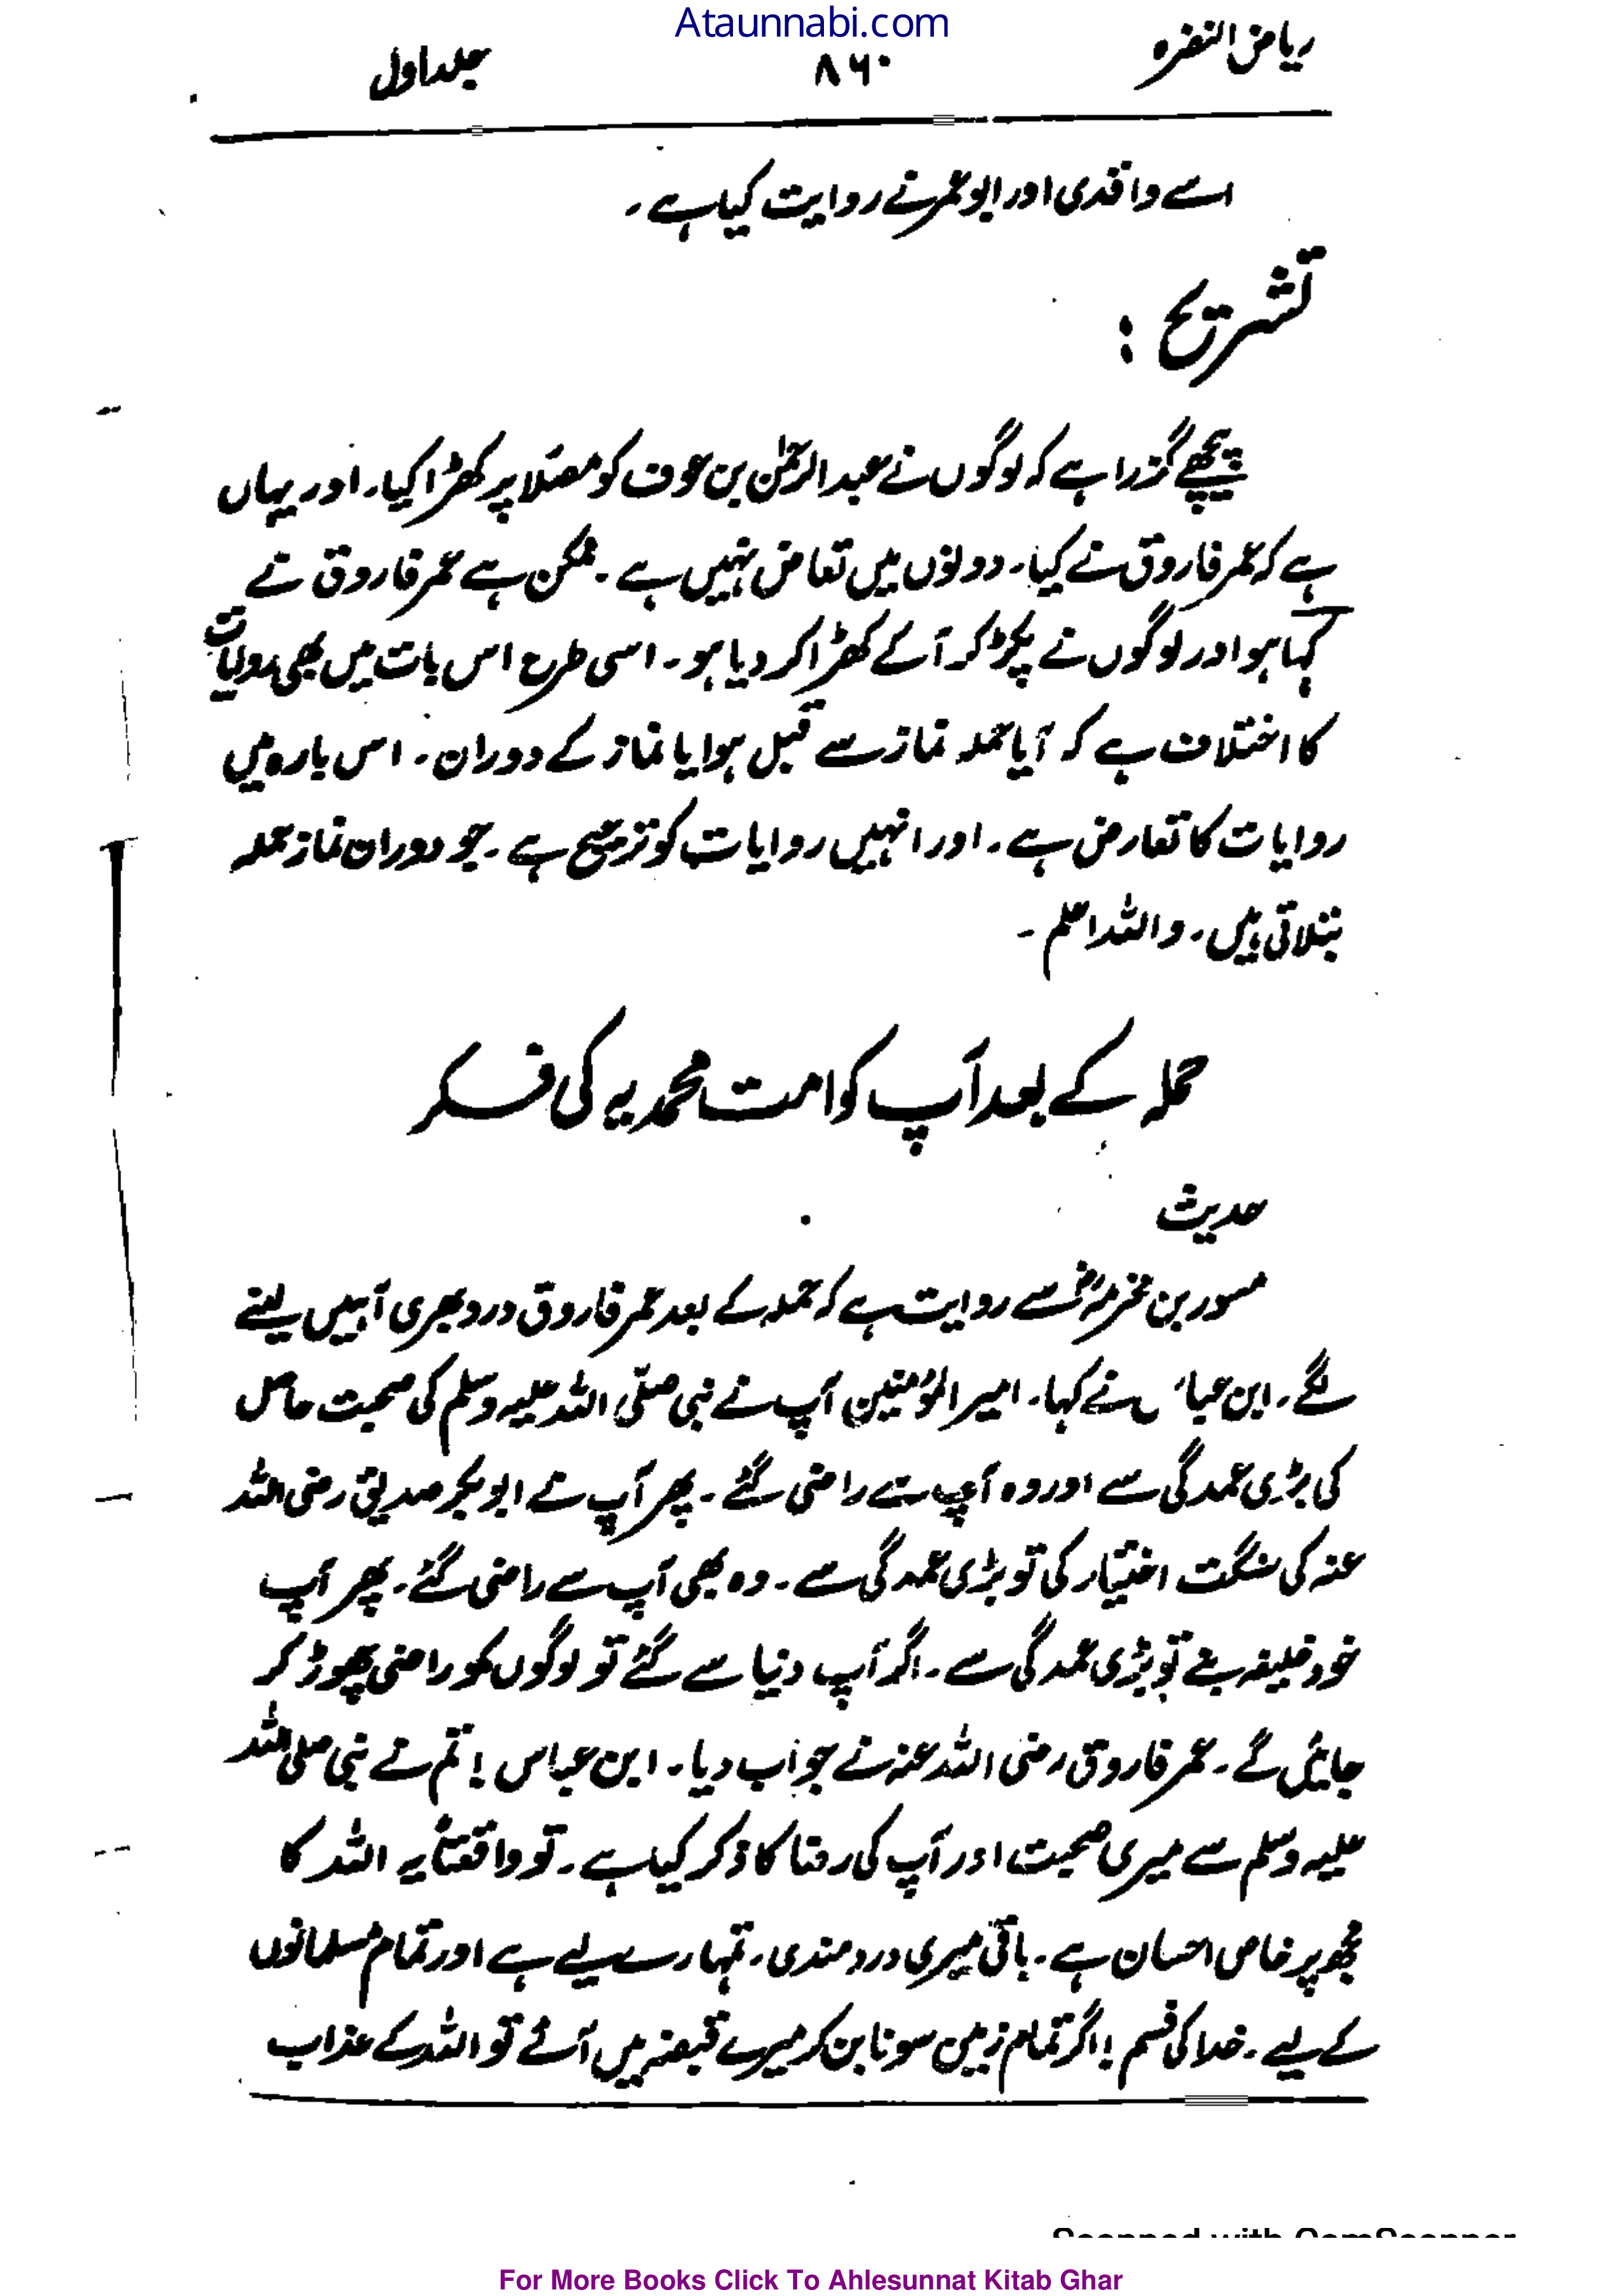 Ataunnabi.com
ریاض النضرہ ۸۶۰ جلد اول
اسے واقدی اور ابو عمر نے روایت کیا ہے ۔
تشریح :
پیچھے گزرا ہے کہ لوگوں نے عبدالرحمٰن بن عوف کو مصلا پر کھڑا کیا۔ اور یہاں
ہے کہ عمر فاروق نے کیا۔ دونوں میں تعارض نہیں ہے ۔ ممکن ہے عمر فاروق نے
کہا ہو اور لوگوں نے پکڑ کر آگے کھڑا کر دیا ہو ۔ اسی طرح اس بات میں بھی روایات
کا اختلاف ہے کہ آیا حملہ نماز سے قبل ہوا یا نماز کے دوران ۔ اس بارہ میں
روایات کا تعارض ہے ۔ اور انہیں روایات کو ترجیح ہے ۔ جو دوران نماز حملہ
بتلاتی ہیں ۔ واللہ اعلم ۔
حملہ کے بعد آپ کو امت محمدیہ کی فکر
حدیث
مسور بن مخرمہؓ سے روایت ہے کہ حملہ کے بعد عمر فاروق درد بھری آہیں لینے
لگے ۔ ابن عباس نے کہا ۔ امیر المؤمنین آپ نے نبی صلی اللہ علیہ وسلم کی صحبت حاصل
کی بڑی عمدگی سے اور وہ آپ سے راضی گئے ۔ پھر آپ نے ابوبکر صدیق رضی اللہ
عنہ کی سنگت اختیار کی تو بڑی عمدگی سے ۔ وہ بھی آپ سے راضی گئے ۔ پھر آپ
خود خلیفہ بنے تو بڑی عمدگی سے ۔ اگر آپ دنیا سے گئے تو لوگوں کو راضی چھوڑ کر
جائیں گے ۔ عمر فاروق رضی اللہ عنہ نے جواب دیا ۔ ابن عباس ! تم نے نبی صلی اللہ
علیہ وسلم سے میری صحبت اور آپ کی رضا کا ذکر کیا ہے ۔ تو واقعتاً یہ اللہ کا
مجھ پر خاص احسان ہے ۔ باقی میری دردمندی ، تمہارے لیے ہے اور تمام مسلمانوں
کے لیے ۔ خدا کی قسم ! اگر تمام زمین سونا بن کر میرے قبضہ میں آئے تو اللہ کے عذاب
Scanned with CamScanner
For More Books Click To Ahlesunnat Kitab Ghar